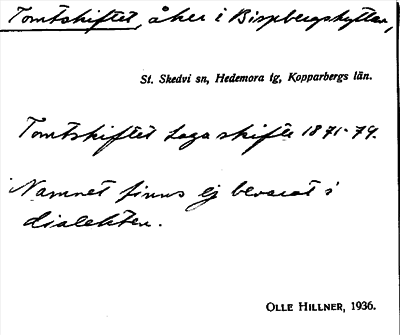 Tomtskiftet, åker i Bispbergshyttan,
St. Skedvi sn, Hedemora tg, Kopparbergs län.
Tomtskiftet Laga skifte 1871-79.
Namnet finns ej bevarat i
dialekten.
OLLE HILLNER, 1936.